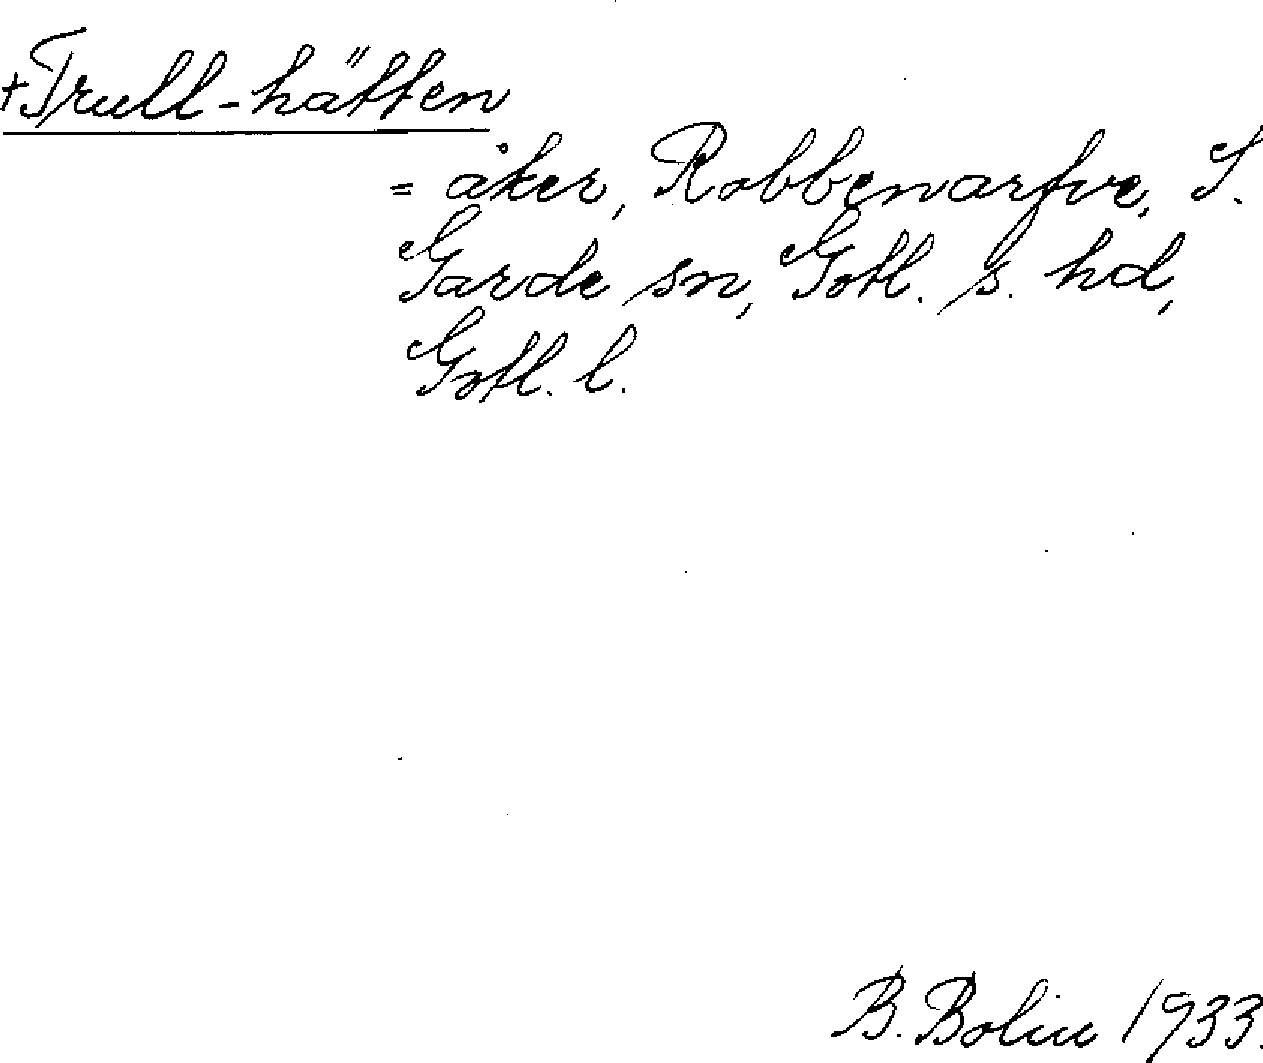 +Trull-hätten
= åker, Robbenarfve, S.
Garde sn, Gotl. s. hd,
Gotl. l.
B. Bolin 1933.